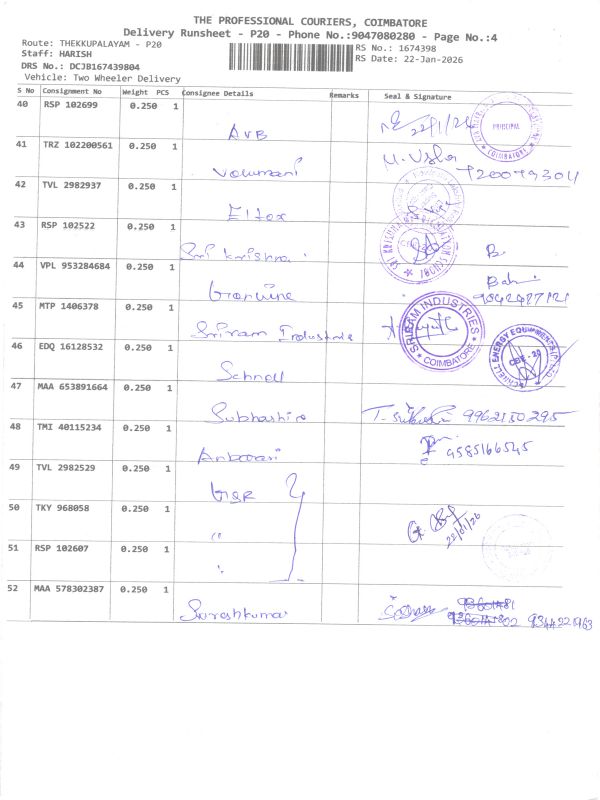 THE PROFESSIONAL COURIERS, COIMBATORE
Delivery Runsheet - P20 - Phone No.:9047080280 - Page No.:4
Route: THEKKUPALAYAM - P20
Staff: HARISH
DRS No.: DCJB167439804
Vehicle: Two Wheeler Delivery
RS No.: 1674398
RS Date: 22-Jan-2026
S No Consignment No Weight PCS Consignee Details Remarks Seal & Signature
40 RSP 102699 0.250 1 AVB 22/1/26
PRINCIPAL
COIMBATORE
41 TRZ 102200561 0.250 1 M. Usha
42 TVL 2982937 0.250 1
43 RSP 102522 0.250 1 Sri krishna B.
44 VPL 953284684 0.250 1
45 MTP 1406378 0.250 1 Sriram Industries
SRIRAM INDUSTRIES
COIMBATORE
46 EDQ 16128532 0.250 1 Schnell
SCHNELL ENERGY EQUIPMENTS (P) LTD
CBE - 20
47 MAA 653891664 0.250 1 9962130295
48 TMI 40115234 0.250 1 9585166545
49 TVL 2982529 0.250 1
50 TKY 968058 0.250 1 " 22/01/26
51 RSP 102607 0.250 1
52 MAA 578302387 0.250 1 Sureshkumar